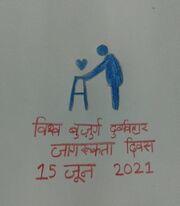 विश्व बुजुर्ग दुर्व्यवहार
जागरूकता दिवस
15 जून 2021